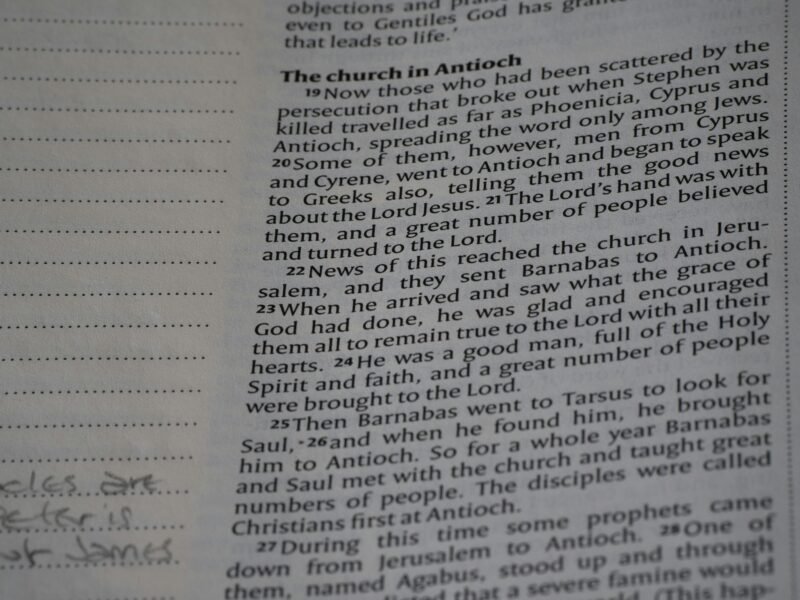 objections and
even to Gentiles God has
that leads to life.'
The church in Antioch
19Now those who had been scattered by the
persecution that broke out when Stephen was
killed travelled as far as Phoenicia, Cyprus and
Antioch, spreading the word only among Jews.
20Some of them, however, men from Cyprus
and Cyrene, went to Antioch and began to speak
to Greeks also, telling them the good news
about the Lord Jesus. 21The Lord's hand was with
them, and a great number of people believed
and turned to the Lord.
22News of this reached the church in Jeru-
salem, and they sent Barnabas to Antioch.
23When he arrived and saw what the grace of
God had done, he was glad and encouraged
them all to remain true to the Lord with all their
hearts. 24He was a good man, full of the Holy
Spirit and faith, and a great number of people
were brought to the Lord.
25Then Barnabas went to Tarsus to look for
Saul, 26and when he found him, he brought
him to Antioch. So for a whole year Barnabas
and Saul met with the church and taught great
numbers of people. The disciples were called
Christians first at Antioch.
27During this time some prophets came
down from Jerusalem to Antioch. 28One of
them, named Agabus, stood up and through
that a severe famine would
(This hap-
are
Peter is
James